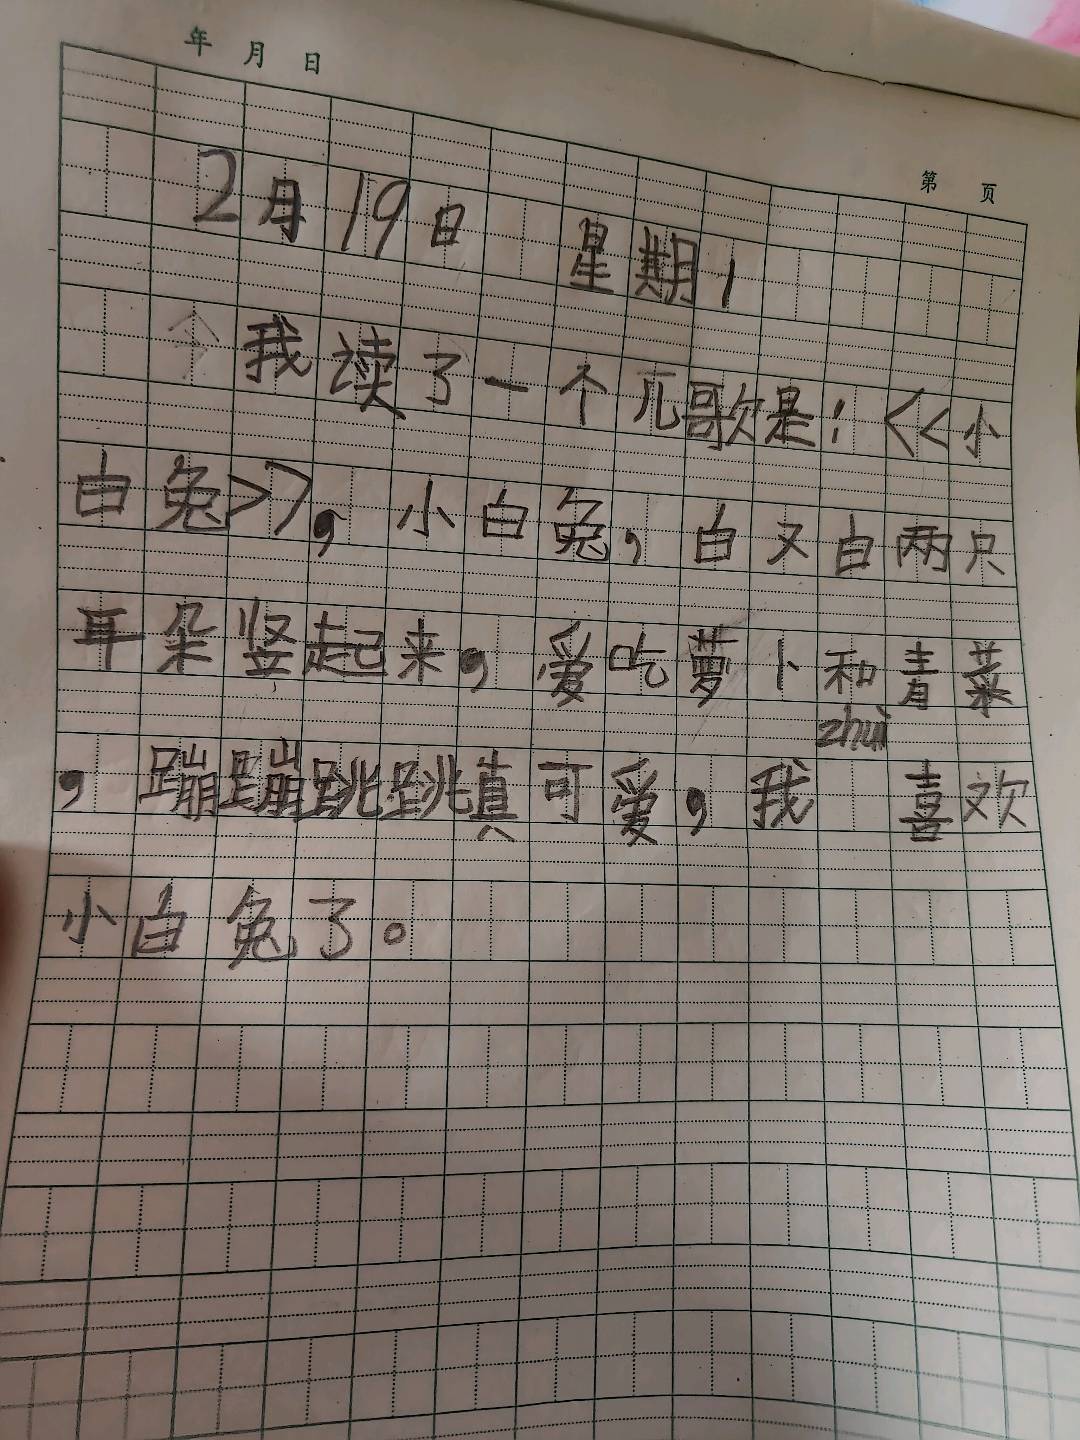 年 月 日
第 页
2月19日 星期1
我读了一个儿歌是:《小
白兔》,小白兔,白又白两只
耳朵竖起来,爱吃萝卜和青菜
zhui
,蹦蹦跳跳真可爱,我 喜欢
小白兔了。